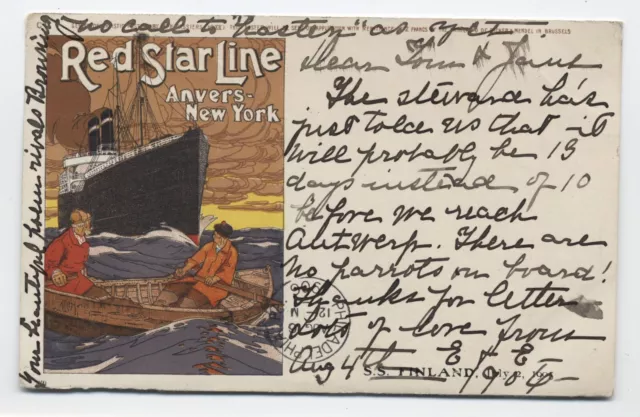 no call to "hasten" as yet
Red Star Line
Anvers-
New York
Dear Tom &
The steward has
just told us that it
will probably be 13
days instead of 10
before we reach
Antwerp. There are
no parrots on board!
Thanks for letter
lots of love from
E & E
Aug 4th 1906
S.S. FINLAND, July 2,
PHILADELPHIA
12 M
Your beautiful poem rivals Browning